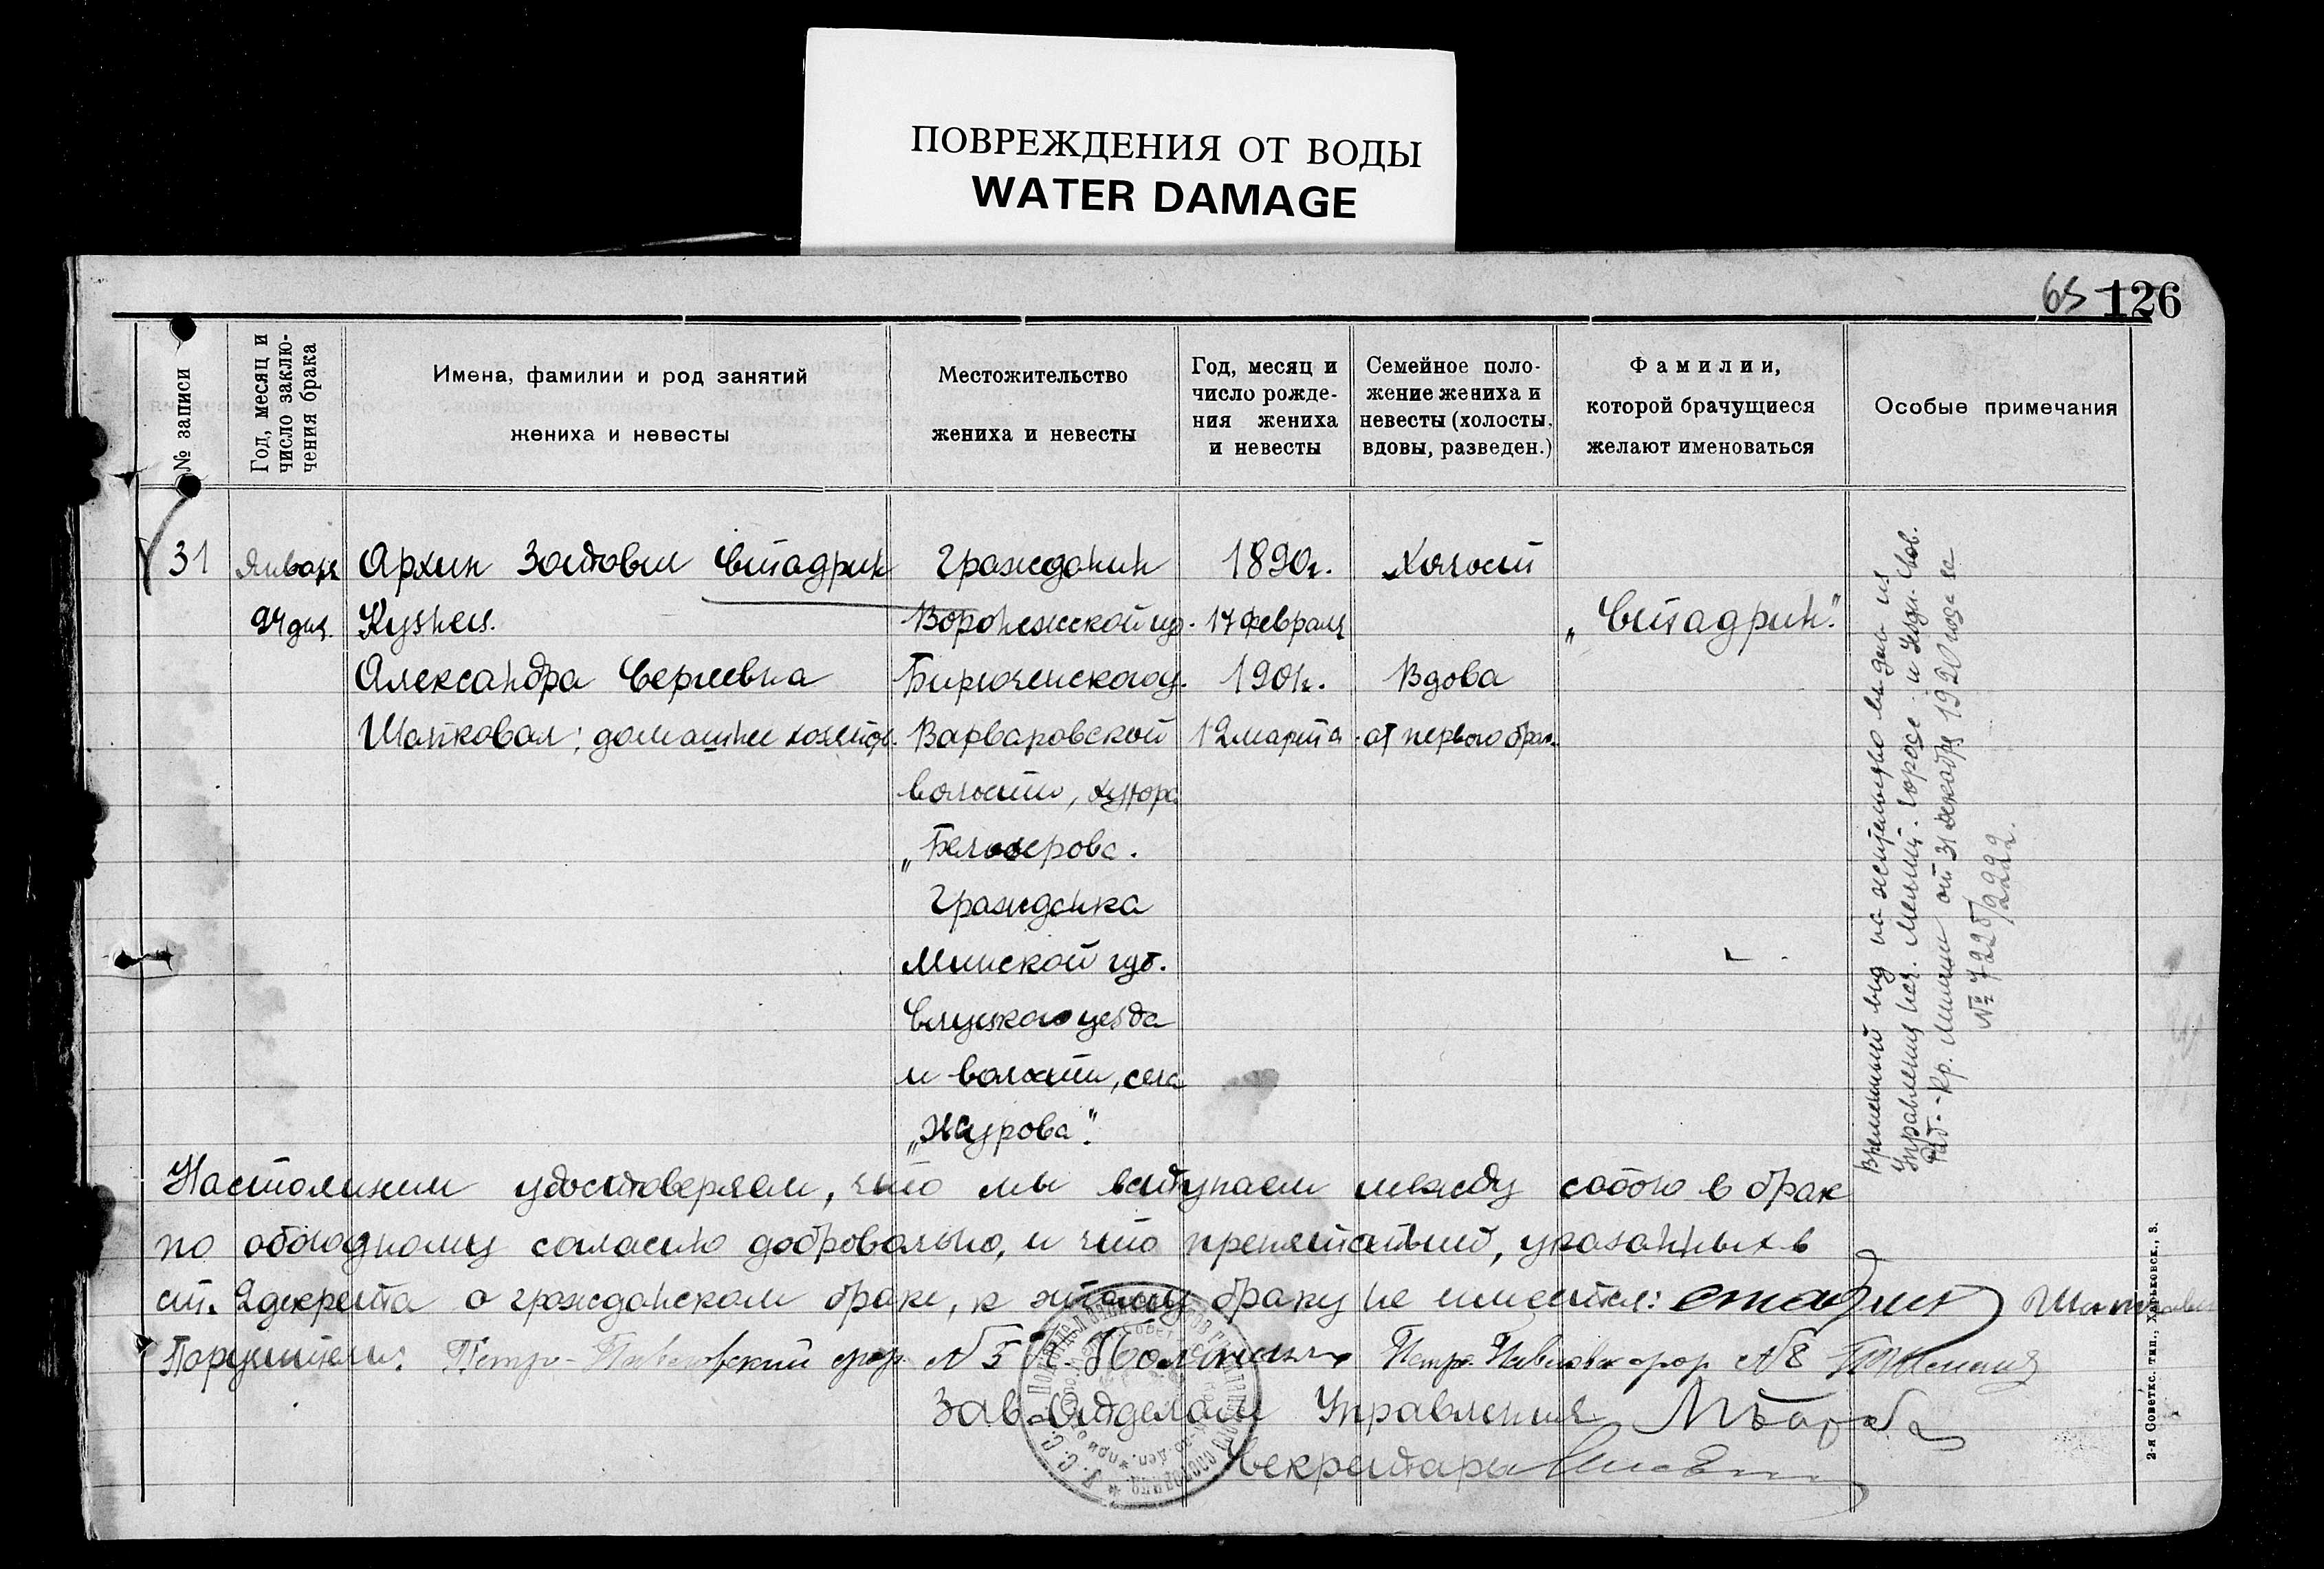 ПОВРЕЖДЕНИЯ ОТ ВОДЫ
WATER DAMAGE
65 126
№ записи
Год, месяц и
число заклю-
чения брака
Имена, фамилии и род занятий
жениха и невесты
Местожительство
жениха и невесты
Год, месяц и
число рожде-
ния жениха
и невесты
Семейное поло-
жение жениха и
невесты (холосты,
вдовы, разведен.)
Фамилии,
которой брачущиеся
желают именоваться
Особые примечания
31
Января
24 дня.
Архип Стадрик
Кузнец.
Александра Сергеевна
Шапковая; домашнее хозяйст.
Гражданин
Воронежской гу.
Бирюченского у.
Варваровской
волости, хутора
„Белозерова.
Гражданка
Минской губ.
Слуцкого уезда
и волости, села
„Журова".
1890г.
17 февраля
1901г.
12 марта
Холост
Вдова
от первого брак.
„Стадрик".
Временный вид на жительство выдан из
Управления нач. Милиц. города и Уездн. Сов.
Раб.-Кр. милиции от 31 декабря 1920 года за
№ 7225/2222.
Настоящим удостоверяем, что мы вступаем между собою в брак
по обоюдному согласию добровольно, и что препятствий, указанных в
ст. 2 декрета о гражданском браке, к этому браку не имеется: Стадрик
Поручители: Петро-Павловский № 5 Петро-Павловск № 8
Зав. Отделом Управления
Секретарь
2-я Советск. тип., Харьковск., 3.